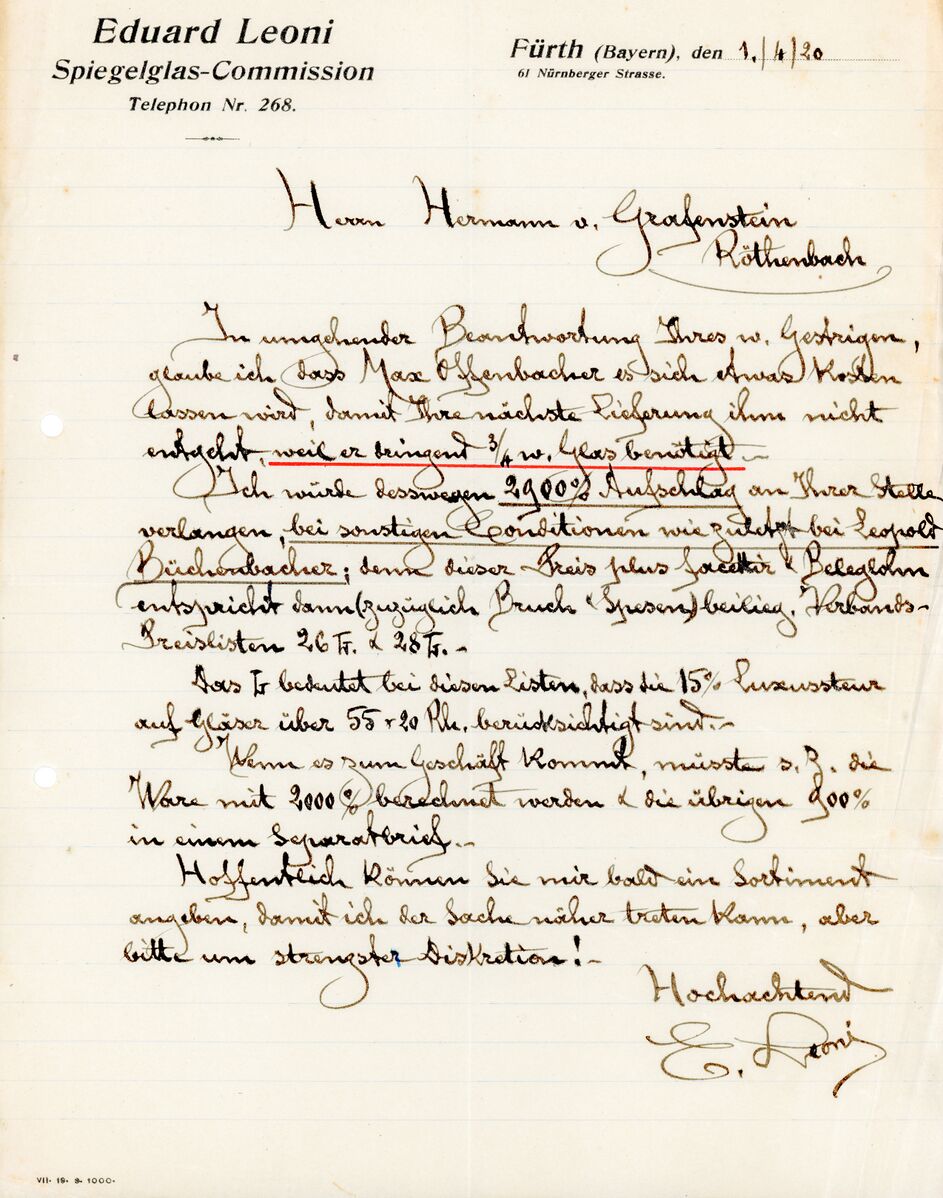 Eduard Leoni
Spiegelglas-Commission
Telephon Nr. 268.
Fürth (Bayern), den 1./4/20
61 Nürnberger Strasse.
Herrn Hermann v. Grafenstein
Röthenbach
In umgehender Beantwortung Ihres w. Gestrigen,
glaube ich dass Max Offenbacher es sich etwas kosten
lassen wird, damit Ihre nächste Lieferung ihm nicht
entgeht, weil er dringend 3/4 w. Glas benötigt.-
Ich würde desswegen 2900% Aufschlag an Ihrer Stelle
verlangen, bei sonstigen Conditionen wie zuletzt bei Leopold
Büchenbacher; denn dieser Preis plus facettir & Beleglohn
entspricht dann (zuzüglich Bruch & Spesen) beilieg. Verbands-
Preislisten 26 & 28 .-
Das bedeutet bei diesen Listen, dass die 15% Luxussteur
auf Gläser über 55 20 Rh. berücksichtigt sind.-
Wenn es zum Geschäft kommt, müsste s. Z. die
Ware mit 2000% berechnet werden & die übrigen 900%
in einem Separatbrief.-
Hoffentlich können Sie mir bald ein Sortiment
angeben, damit ich der Sache näher treten kann, aber
bitte um strengster Diskretion!-
Hochachtend
E. Leoni
VII. 19. 3. 1000.